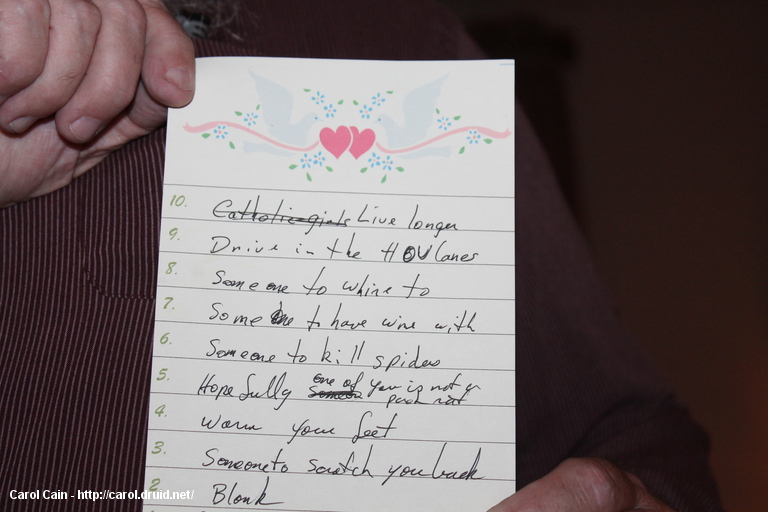 10. Catholic girls Live longer
9. Drive in the HOV lanes
8. Someone to whine to
7. Some one to have wine with
6. Someone to kill spiders
5. Hopefully one of you is not a
pack rat
4. warm your feet
3. Someone to scratch you back
2. Blank
Carol Cain - http://carol.druid.net/